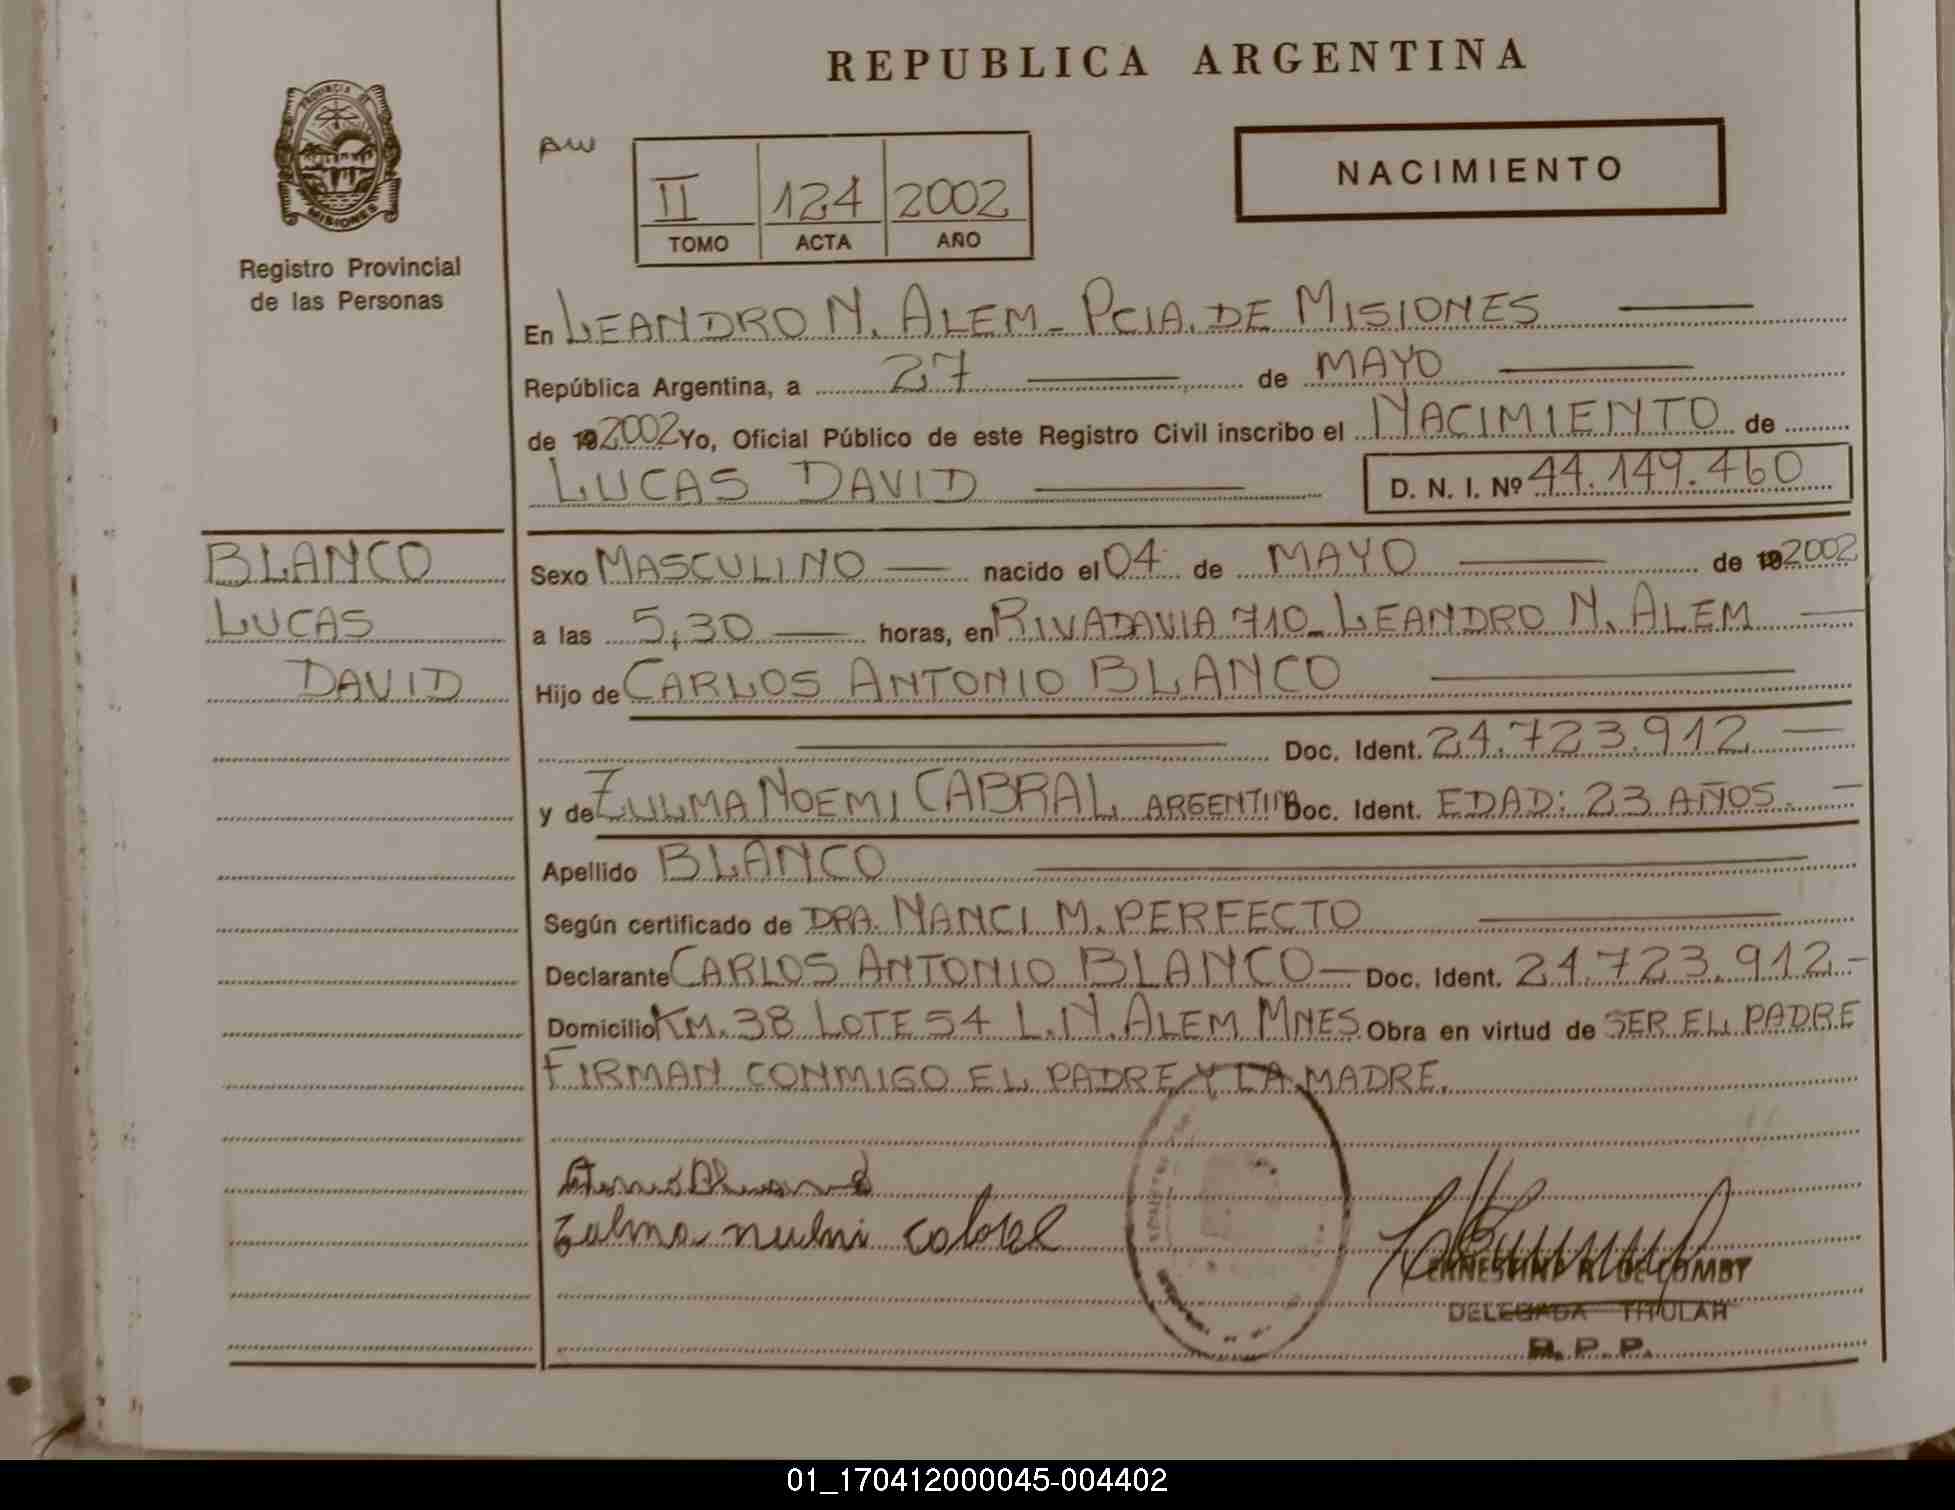 REPUBLICA ARGENTINA
PROVINCIA DE
MISIONES
Registro Provincial
de las Personas
AW
II 124 2002
TOMO ACTA AÑO
NACIMIENTO
En LEANDRO N. ALEM - PCIA. DE MISIONES
República Argentina, a 27 de MAYO
de 192002 Yo, Oficial Público de este Registro Civil inscribo el NACIMIENTO de
LUCAS DAVID D. N. I. Nº 44.149.460
BLANCO
LUCAS
DAVID
Sexo MASCULINO nacido el 04 de MAYO de 192002
a las 5,30 horas, en RIVADAVIA 710 - LEANDRO N. ALEM
Hijo de CARLOS ANTONIO BLANCO
Doc. Ident. 24.723.912
y de ZULMA NOEMI CABRAL ARGENTINA Doc. Ident. EDAD: 23 AÑOS.
Apellido BLANCO
Según certificado de DRA. NANCI M. PERFECTO
Declarante CARLOS ANTONIO BLANCO Doc. Ident. 24.723.912
Domicilio KM. 38 LOTE 54 L.N. ALEM MNES Obra en virtud de SER EL PADRE
FIRMAN CONMIGO EL PADRE Y LA MADRE.
ERNESTINA R. DE COMBY
DELEGADA TITULAR
R. P. P.
01_170412000045-004402